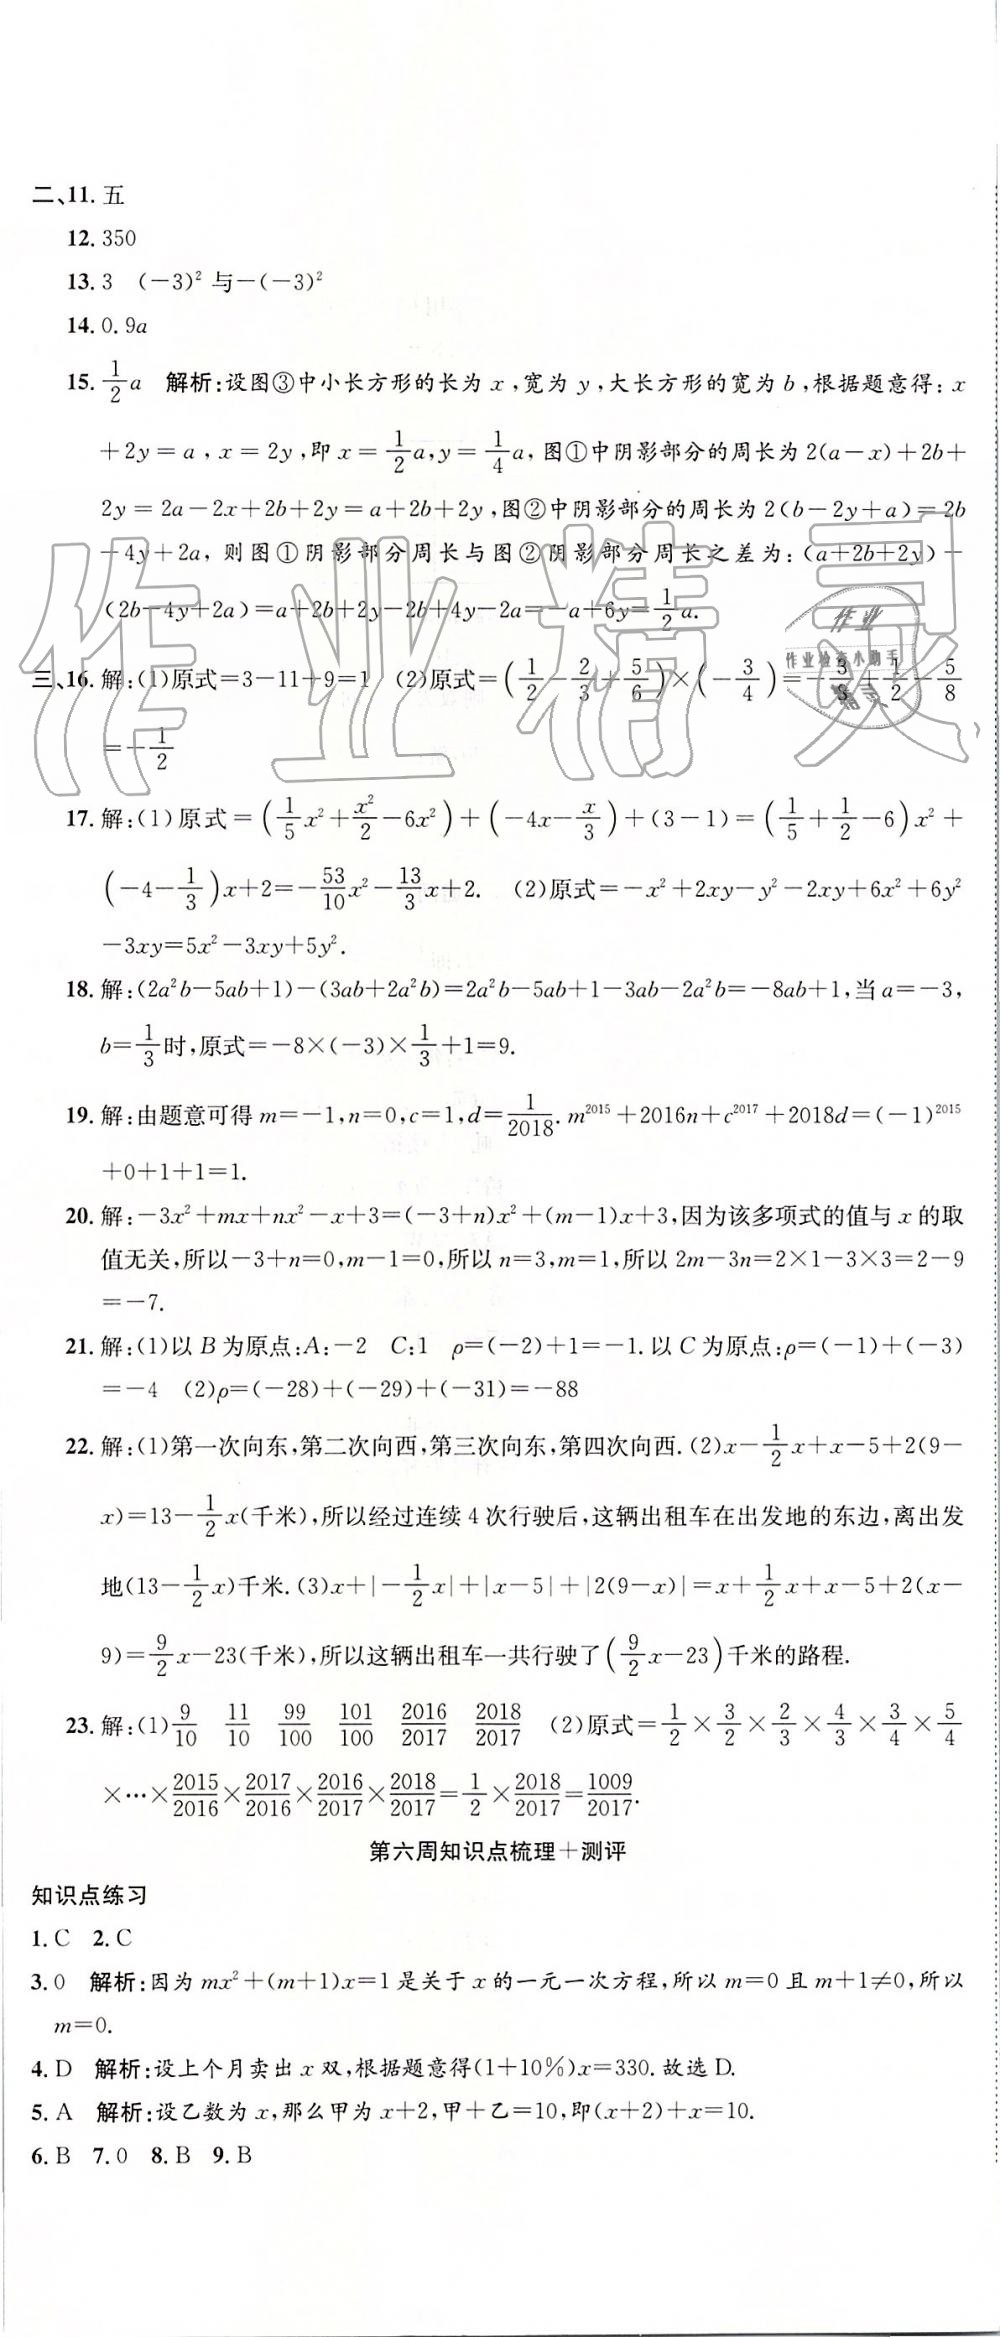 二、11. 五
12. 350
13. 3 (-3)² 与-(-3)²
14. 0.9a
15. 1/2 a 解析:设图③中小长方形的长为 x,宽为 y,大长方形的宽为 b,根据题意得: x
+2y=a, x=2y,即 x=1/2 a, y=1/4 a, 图①中阴影部分的周长为 2(a-x)+2b+
2y=2a-2x+2b+2y=a+2b+2y,图②中阴影部分的周长为 2(b-2y+a)=2b
-4y+2a, 则图①阴影部分周长与图②阴影部分周长之差为: (a+2b+2y)-
(2b-4y+2a)=a+2b+2y-2b+4y-2a=-a+6y=1/2 a.
三、16. 解:(1)原式=3-11+9=1 (2)原式=(1/2-2/3+5/6)×(-3/4)=-3/8+1/2-5/8
=-1/2
17. 解:(1)原式=(1/5 x²+x²/2-6x²)+(-4x-x/3)+(3-1)=(1/5+1/2-6)x²+
(-4-1/3)x+2=-53/10 x²-13/3 x+2. (2)原式=-x²+2xy-y²-2xy+6x²+6y²
-3xy=5x²-3xy+5y².
18. 解:(2a²b-5ab+1)-(3ab+2a²b)=2a²b-5ab+1-3ab-2a²b=-8ab+1,当 a=-3,
b=1/3时,原式=-8×(-3)×1/3+1=9.
19. 解:由题意可得 m=-1,n=0,c=1,d=1/2018. m²⁰¹⁵+2016n+c²⁰¹⁷+2018d=(-1)²⁰¹⁵
+0+1+1=1.
20. 解:-3x²+mx+nx²-x+3=(-3+n)x²+(m-1)x+3,因为该多项式的值与 x 的取
值无关,所以-3+n=0,m-1=0,所以 n=3,m=1,所以 2m-3n=2×1-3×3=2-9
=-7.
21. 解:(1)以 B 为原点:A:-2 C:1 ρ=(-2)+1=-1. 以 C 为原点:ρ=(-1)+(-3)
=-4 (2)ρ=(-28)+(-29)+(-31)=-88
22. 解:(1)第一次向东,第二次向西,第三次向东,第四次向西. (2)x-1/2 x+x-5+2(9-
x)=13-1/2 x(千米),所以经过连续 4 次行驶后,这辆出租车在出发地的东边,离出发
地(13-1/2 x)千米. (3)x+|-1/2 x|+|x-5|+|2(9-x)|=x+1/2 x+x-5+2(x-
9)=9/2 x-23(千米),所以这辆出租车一共行驶了(9/2 x-23)千米的路程.
23. 解:(1)9/10 11/10 99/100 101/100 2016/2017 2018/2017 (2)原式=1/2×3/2×2/3×4/3×3/4×5/4
×…×2015/2016×2017/2016×2016/2017×2018/2017=1/2×2018/2017=1009/2017.
第六周知识点梳理+测评
知识点练习
1. C 2. C
3. 0 解析:因为 mx²+(m+1)x=1 是关于 x 的一元一次方程,所以 m=0 且 m+1≠0,所以
m=0.
4. D 解析:设上个月卖出 x 双,根据题意得(1+10%)x=330. 故选 D.
5. A 解析:设乙数为 x,那么甲为 x+2,甲+乙=10,即(x+2)+x=10.
6. B 7. 0 8. B 9. B
作业精灵
作业
作业检查小助手
精灵